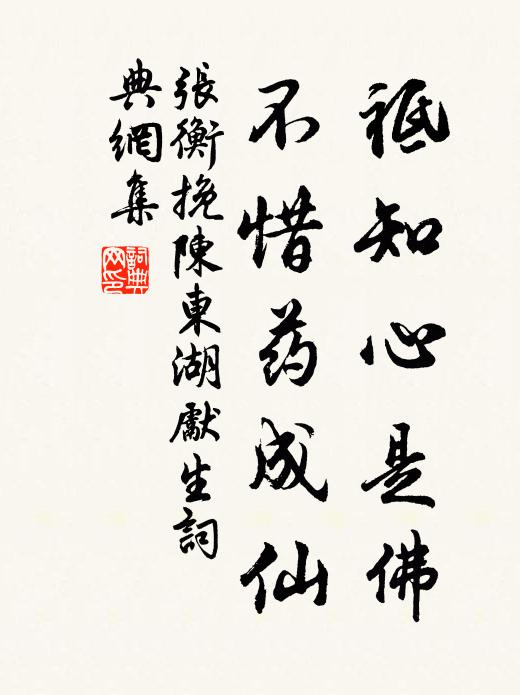 祗知心是佛
不惜药成仙
張衡挽陳東湖獻生詞
典網集
詞典
网印